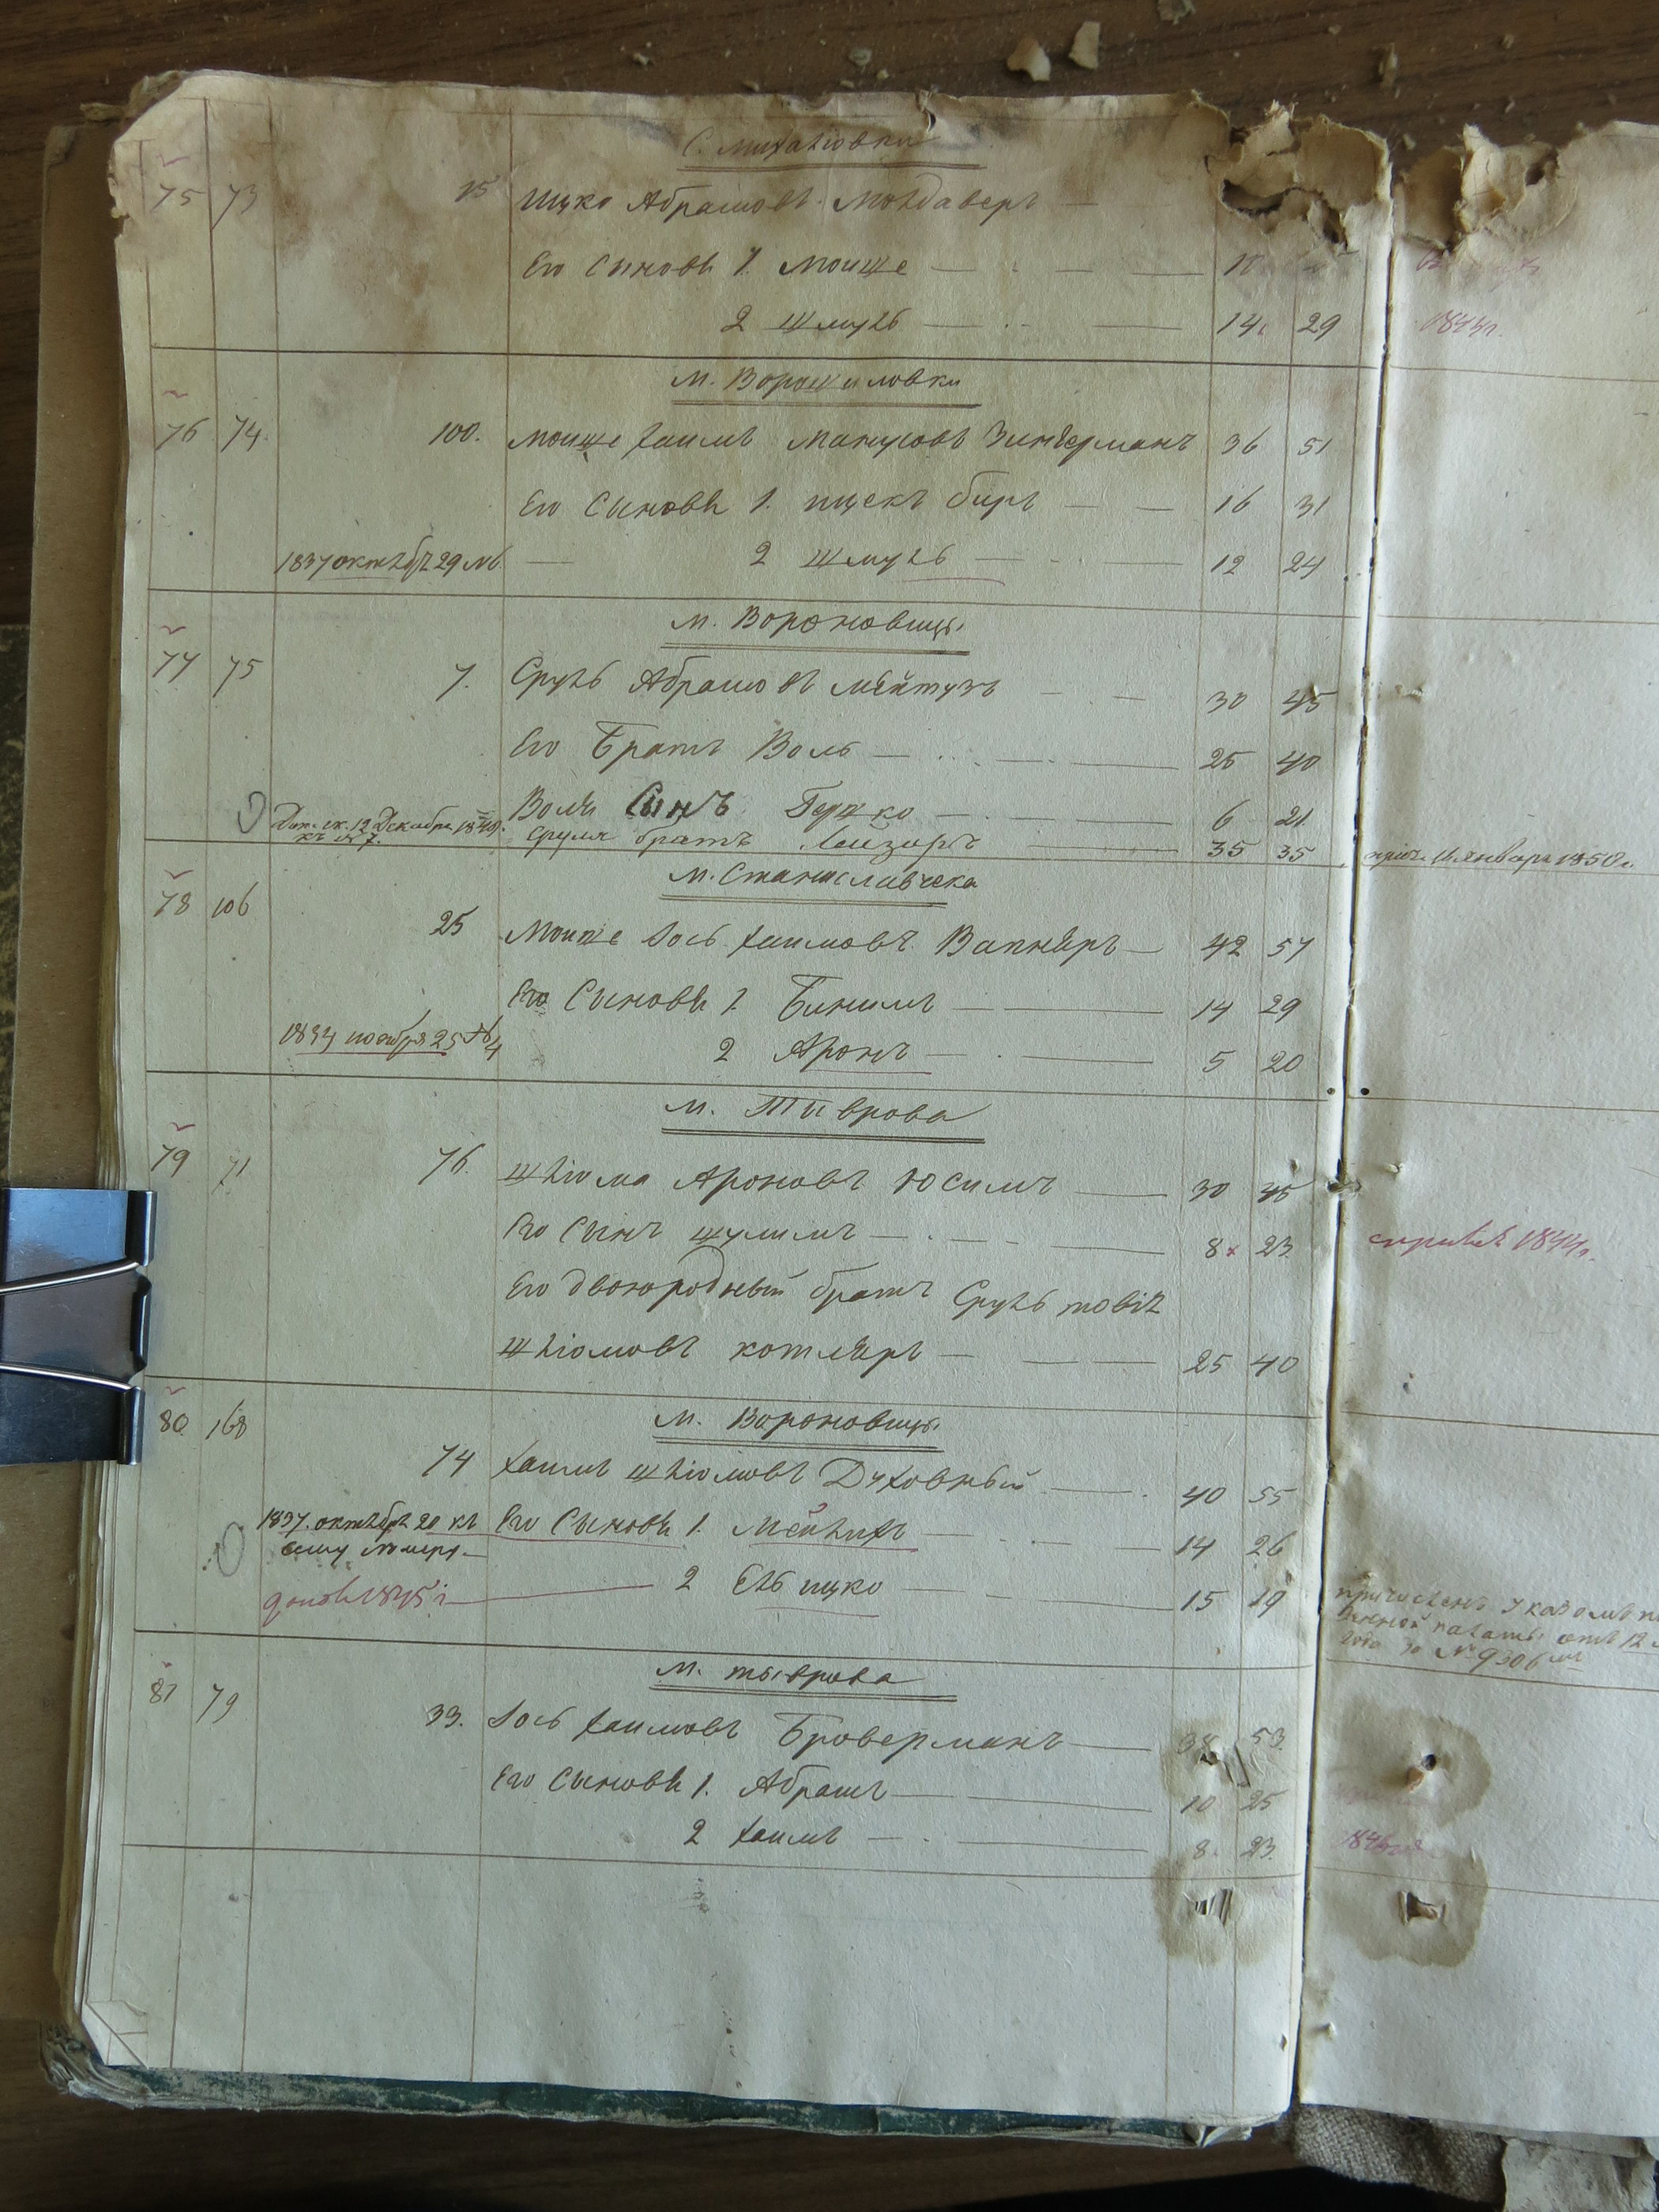 С. Михаловки
75 73 15 Ицко Абрамовъ Молдаверъ
Его Сыновья 1. Моише 10
2 Шмуль 14 29 1844г.
м. Ворошиловки
76 74 100. Моише Хаимъ Манусовъ Зингерманъ 36 51
Его Сыновья 1. ицекъ биръ 16 31
1837 октября 29 № 2 шмуль 12 24
м. Вороновицы
77 75 7. Сруль Абрамовъ Мейтузъ 30 45
Его Братъ Воль 25 40
Воля Сынъ Гершко 6 21
Доп. ск. 12 Декабря 1849. къ № 7. Сруля братъ Лейзоръ 35 35 прич. 16 Января 1850 г.
м. Станиславчека
78 106 25 Моише Iось Хаимовъ Вапняръ 42 57
Его Сыновья 1. Бинимъ 14 29
1834 ноября 25 № 4 2 Аронъ 5 20
м. Тыврова
79 71 76. шліома Ароновъ Юсимъ 30 45
Его Сынъ шулимъ 8 23 1844г.
Его двоюродный братъ Сруль товія
шліомовъ котляръ 25 40
м. Вороновицы
80 168 74 Хаимъ шліомовъ Духовный 40 55
1837. октября 20 къ сему номеру Его Сыновья 1. Мейлихъ 14 26
допол 1845 г 2 Ель ицко 15 19
причисленъ Указомъ
казенной палаты отъ 12
года за № 9306
м. тыврова
81 79 33. Iось Хаимовъ Броверманъ 38 53
Его Сыновья 1. Абрамъ 10 25
2 Хаимъ 8 23